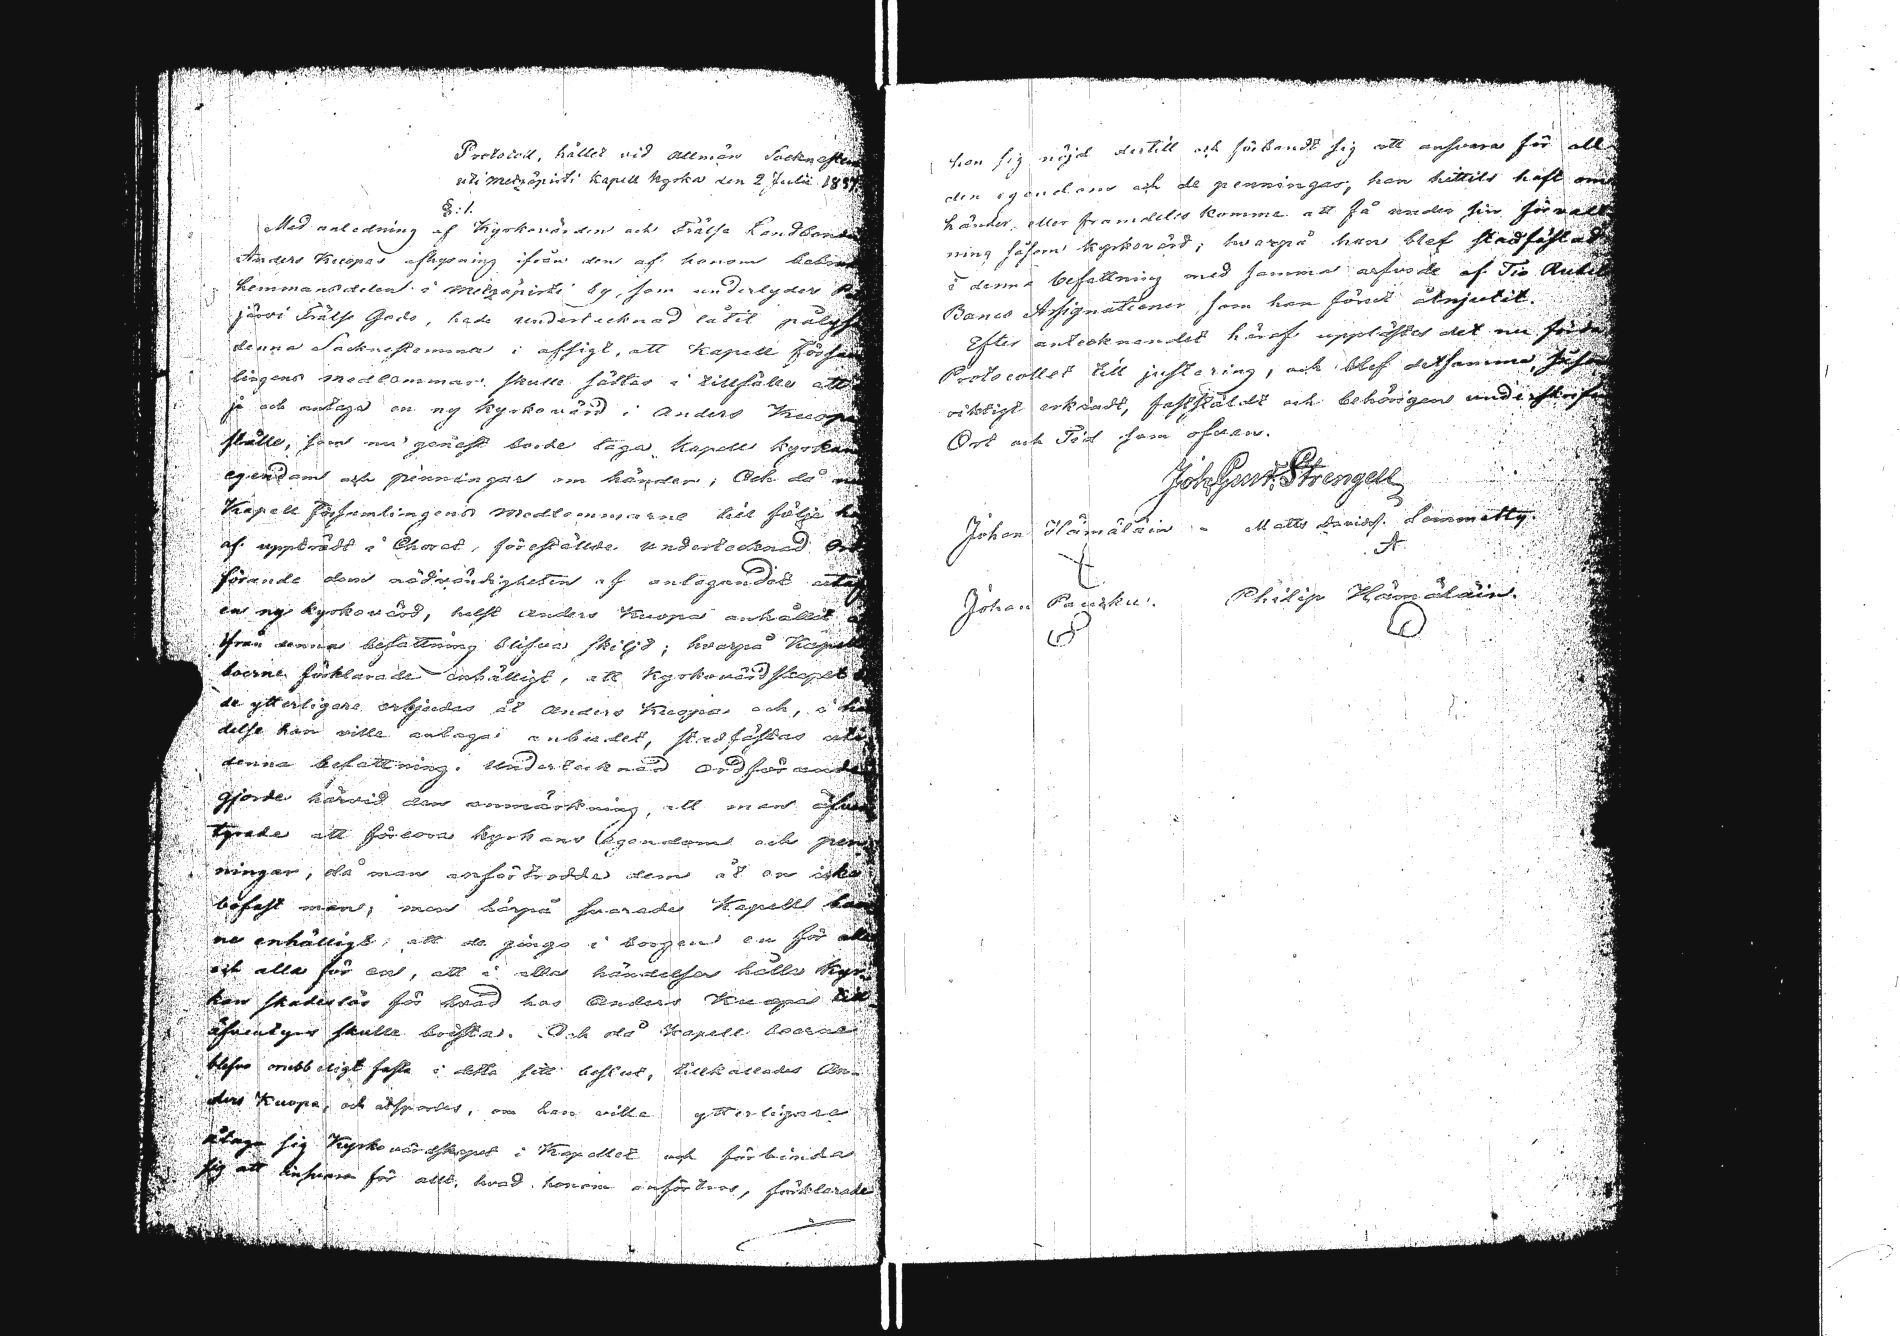 Protocoll, hållet vid allmän Socknestäm
uti Metzäpirti Kapell Kyrka den 2 Julii 1837.
§: 1.
Med anledning af Kyrkovärden och Frälse Landbonde
Anders Kuopas afhysning ifrån den af honom
hemmansdelen i Metzäpirti by, som underlyder
järvi Frälse Gods, hade undertecknad låtit pålysa
denna Socknestämma i afsigt, att Kapell Församm
lingens medlemmar skulle sättas i tillfälle att
ja och antaga en ny Kyrkovärd i Anders Kuopas
ställe, som nu genast borde taga Kapell Kyrkans
egendom och penningar om händer; Och då nu
Kapell Församlingens Medlemmarne till följe
af uppträdt i Choret, föreställde undertecknad Ord
förande dem nödvändigheten af antagandet utaf
en ny Kyrkovärd, helst Anders Kuopa anhållit
från denna befattning blifva skiljd; hvarpå Kapell
boerne förklarade enhälligt, att Kyrkovärdskapet
de ytterligare erbjudas åt Anders Kuopa och, i hän
delse han ville antaga anbudet, stadfästas uti
denna befattning. Undertecknad Ordförande
gjorde härvid den anmärkning, att man äfven
tyrade att förlora kyrkans egendom och pen
ningar, då man anförtrodde dem åt en icke
bofast man; men härpå svarade Kapell boer
ne enhälligt: att de gingo i borgen en för alla
och alla för en, att i alla händelser hålla Kyr
kan skadeslös för hvad hos Anders Kuopa till
äfventyrs skulle brista. Och då Kapell boerne
blefvo orubbeligt fasta i detta sitt beslut, tillkallades An
ders Kuopa, och åtspordes, om han ville ytterligare
åtaga sig Kyrkovärdskapet i Kapellet och förbinda
sig att ansvara för allt, hvad honom anförtros, förklarade
han sig nöjd dertill och förbandt sig att ansvara för all
den egendom och de penningar, han hittils haft om
händer, eller framdeles komme att få under sin förvalt
ning såsom Kyrkovärd; hvarpå han blef stadfästad
i denna befattning med samma arfvode af Tio Rubel
Banco Assignationer, som han förut åtnjutit.
Efter antecknandet häraf upplästes det nu förda
Protocollet till justering, och blef detsamma, såsom
riktigt erkändt, fastställdt och behörigen underskrifvet
Ort och Tid som ofvan.
Joh. Gust. Strengell
Johan Hämäläin - Matts Davidss. Lemmetty.
Johan Pauzku. Philip Hämäläin.